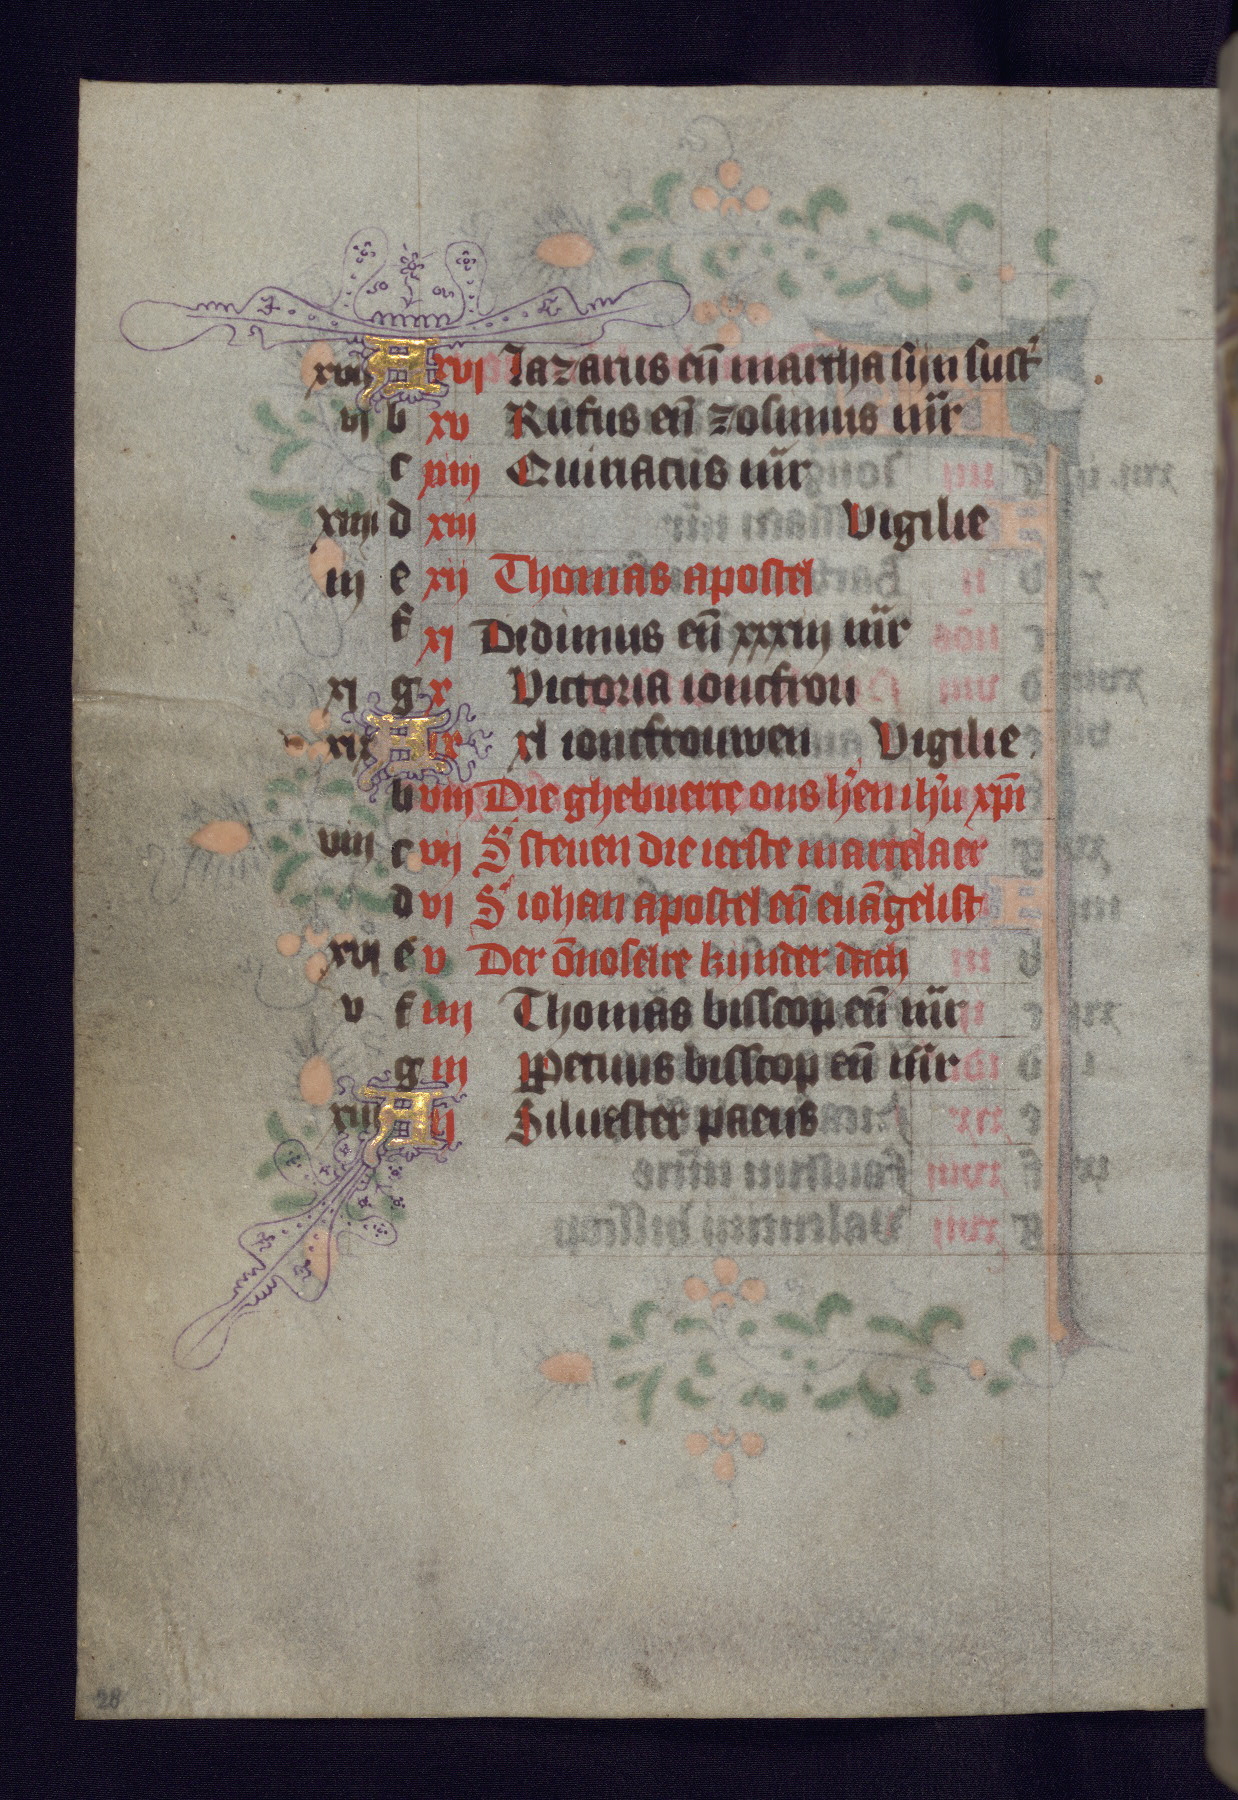 xvii A xvi Lazarus eñ martha sijn sust'
vi b xv Rufus eñ zosimus mr̃
c iiij Quinatus mr̃
xiiii d xiii Vigilie
iii e xij Thomas apostel
f xi Dedimus eñ xxxiij mr̃
xi g x Victoria ioncfrou
xix A ix xl ioncfrouwen Vigilie
b viii Die ghebuerte ons hẽn ihũ xpĩ
viii c vij S' steuen die ierste martelaer
d vi S' iohan apostel eñ euãgelist
xvi e v Der õnoselre kijnder dach
v f iiij Thomas bisscop eñ mr̃
g iii Ꝓpetuus bisscop eñ mr̃
xiii A ij Siluester paeus
28